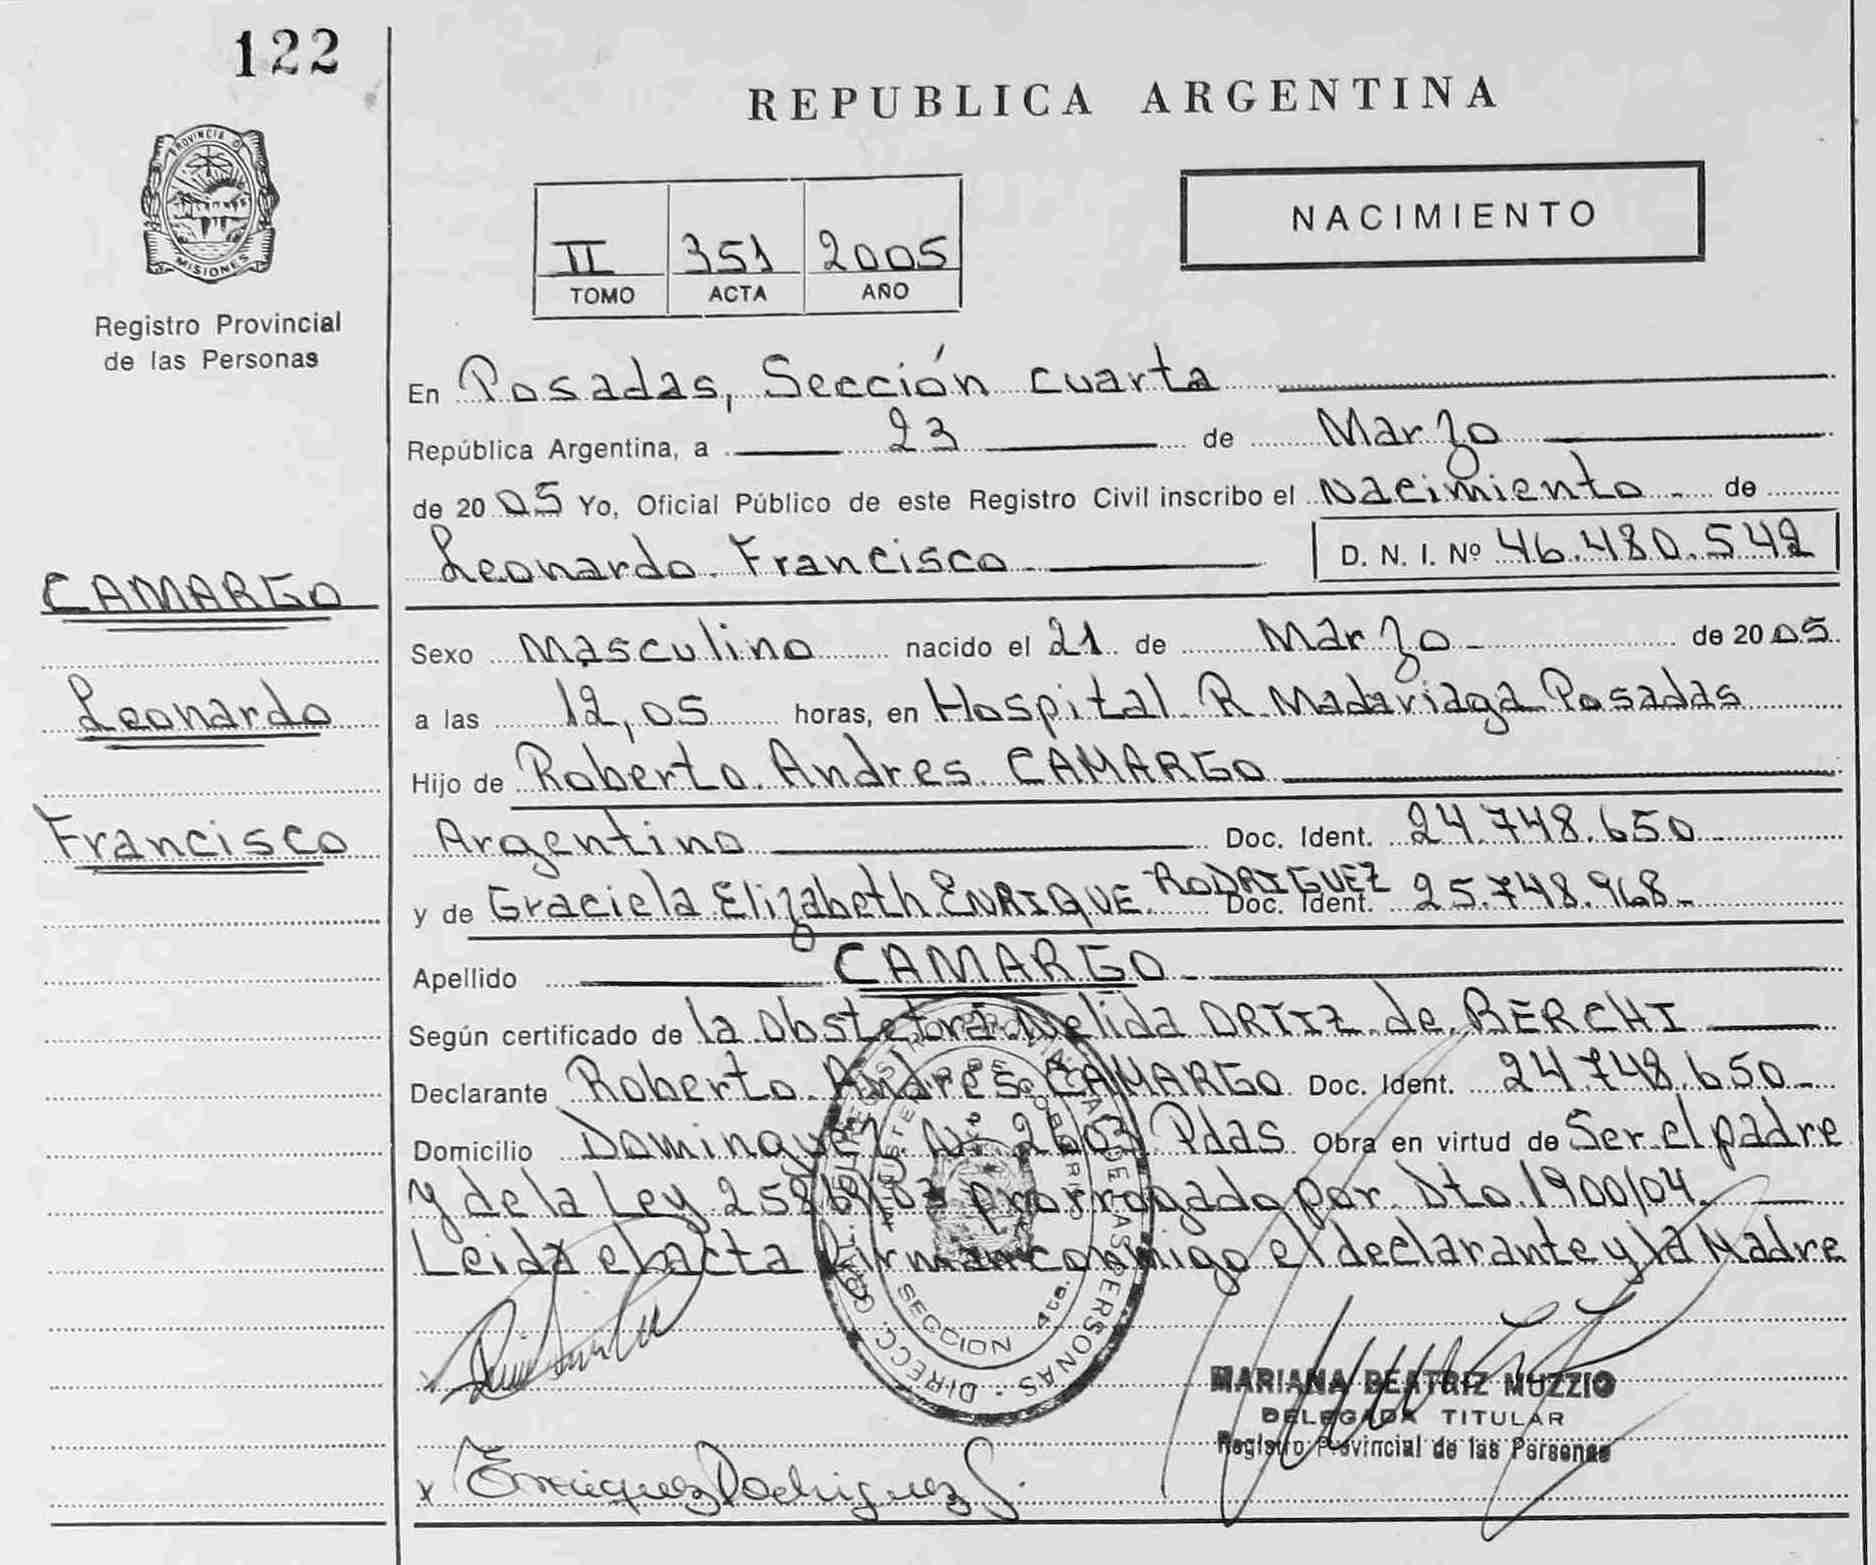 122
REPUBLICA ARGENTINA
PROVINCIA D
MISIONES
Registro Provincial
de las Personas
NACIMIENTO
II 351 2005
TOMO ACTA AÑO
En Posadas, Sección cuarta
República Argentina, a 23 de Marzo
de 2005 Yo, Oficial Público de este Registro Civil inscribo el Nacimiento de
Leonardo Francisco D. N. I. Nº 46.480.542
CAMARGO
Leonardo
Francisco
Sexo Masculino nacido el 21 de Marzo de 2005
a las 12,05 horas, en Hospital R. Madariaga Posadas
Hijo de Roberto Andres CAMARGO
Argentino Doc. Ident. 24.748.650
y de Graciela Elizabeth ENRIQUE RODRIGUEZ Doc. Ident. 25.748.968
Apellido CAMARGO
Según certificado de la Obstetra Nelida ORTIZ de BERCHI
Declarante Roberto Andres CAMARGO Doc. Ident. 24.748.650
Domicilio Dominguez Nº 2603 Pdas Obra en virtud de Ser el padre
y de la Ley prorrogado por Dto. 1900/04.
Leida el acta firman conmigo el declarante y la Madre
SECCION 4ta.
MARIANA BEATRIZ MUZZIO
DELEGADA TITULAR
Registro Provincial de las Personas
x Enriquez Rodriguez G.